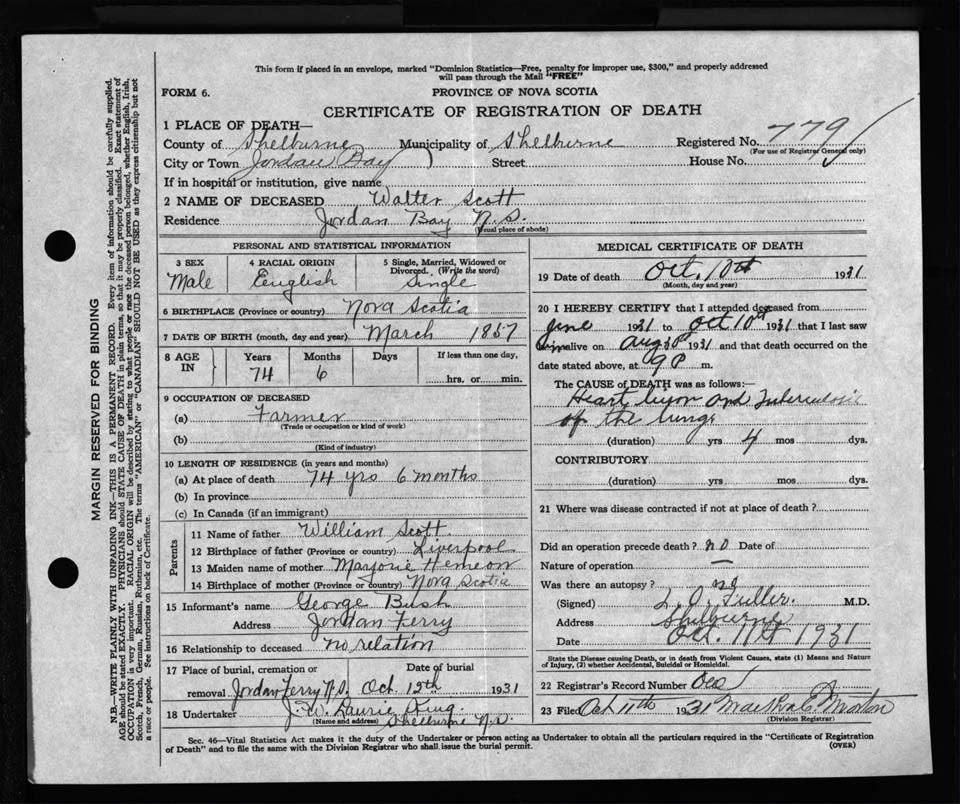 This form if placed in an envelope, marked "Dominion Statistics—Free, penalty for improper use, $300," and properly addressed
will pass through the Mail "FREE"
FORM 6. PROVINCE OF NOVA SCOTIA
CERTIFICATE OF REGISTRATION OF DEATH
1 PLACE OF DEATH—
County of Shelburne Municipality of Shelburne Registered No. 779
(For use of Registrar General only)
City or Town Jordan Bay Street House No.
If in hospital or institution, give name
2 NAME OF DECEASED Walter Scott
Residence Jordan Bay N.S.
(Usual place of abode)
PERSONAL AND STATISTICAL INFORMATION
3 SEX 4 RACIAL ORIGIN 5 Single, Married, Widowed or
Divorced. (Write the word)
Male English Single
6 BIRTHPLACE (Province or country) Nova Scotia
7 DATE OF BIRTH (month, day and year) March 1857
8 AGE IN Years Months Days If less than one day,
74 6 hrs. or min.
9 OCCUPATION OF DECEASED
(a) Farmer
(Trade or occupation or kind of work)
(b)
(Kind of industry)
10 LENGTH OF RESIDENCE (in years and months)
(a) At place of death 74 yrs 6 months
(b) In province
(c) In Canada (if an immigrant)
Parents
11 Name of father William Scott
12 Birthplace of father (Province or country) Liverpool
13 Maiden name of mother Marjorie Hemeon
14 Birthplace of mother (Province or country) Nova Scotia
15 Informant's name George Bush
Address Jordan Ferry
16 Relationship to deceased no relation
17 Place of burial, cremation or Date of burial
removal Jordan Ferry N.S. Oct 12th 1931
18 Undertaker J. W. Laurie King
(Name and address) Shelburne N.S.
MEDICAL CERTIFICATE OF DEATH
19 Date of death Oct. 10th 1931
(Month, day and year)
20 I HEREBY CERTIFY that I attended deceased from
June 1931 to Oct 10th 1931 that I last saw
him alive on Aug 30 1931 and that death occurred on the
date stated above, at 9 P m.
The CAUSE of DEATH was as follows:—
Heart and Tuberculosis
of the lungs
(duration) yrs 4 mos dys.
CONTRIBUTORY
(duration) yrs mos dys.
21 Where was disease contracted if not at place of death?
Did an operation precede death? no Date of
Nature of operation —
Was there an autopsy? no
(Signed) L. O. Fuller. M.D.
Address Shelburne
Date Oct. 11th 1931
State the Disease causing Death, or in death from Violent Causes, state (1) Means and Nature
of Injury, (2) whether Accidental, Suicidal or Homicidal.
22 Registrar's Record Number
23 Filed Oct 11th 1931 Morton
(Division Registrar)
Sec. 46—Vital Statistics Act makes it the duty of the Undertaker or person acting as Undertaker to obtain all the particulars required in the "Certificate of Registration
of Death" and to file the same with the Division Registrar who shall issue the burial permit. (OVER)
MARGIN RESERVED FOR BINDING
N.B.—WRITE PLAINLY WITH UNFADING INK—THIS IS A PERMANENT RECORD. Every item of information should be carefully supplied.
AGE should be stated EXACTLY. PHYSICIANS should STATE CAUSE OF DEATH in plain terms, so that it may be properly classified. Exact statement of
OCCUPATION is very important. RACIAL ORIGIN will be described by stating to what people or race the deceased person belonged, whether English, Irish,
Scotch, French, German, Russian, Ruthenian, etc. The terms "AMERICAN" or "CANADIAN" SHOULD NOT BE USED as they express citizenship but not
a race or people. See instructions on back of Certificate.